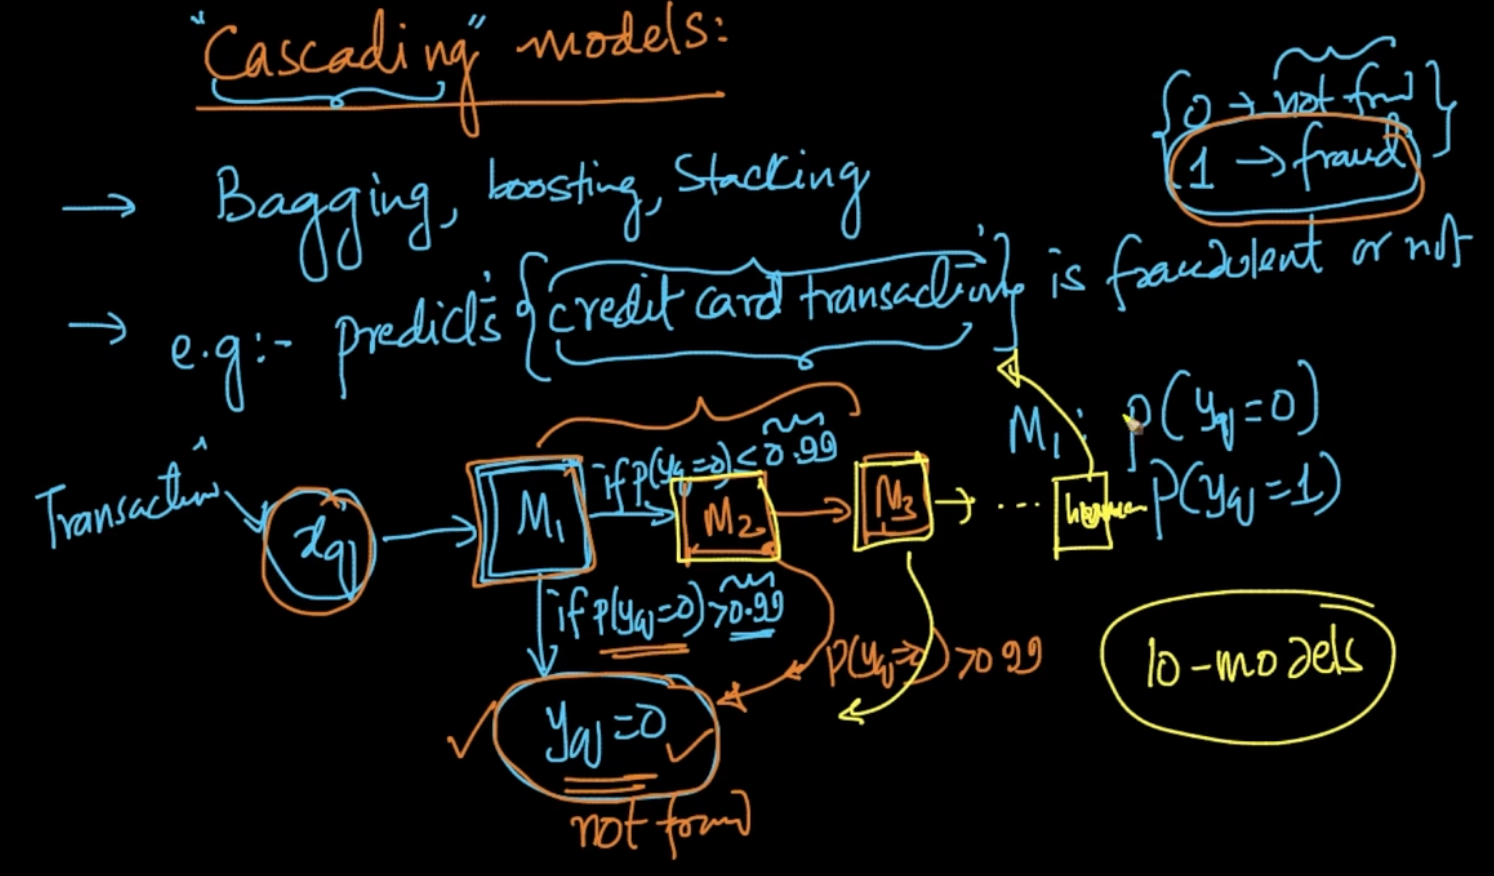 "Cascading" models:
{0 → not fraud
1 → fraud}
→ Bagging, boosting, Stacking
→ e.g:- predicts {credit card transaction} is fraudulent or not
Transaction
xq → M1 if P(yq=0) < 0.99 → M2 → M3 → ... human
M1: P(yq=0)
P(yq=1)
if P(yq=0) > 0.99
P(yq=0) > 0.99
10-models
yq = 0
not fraud